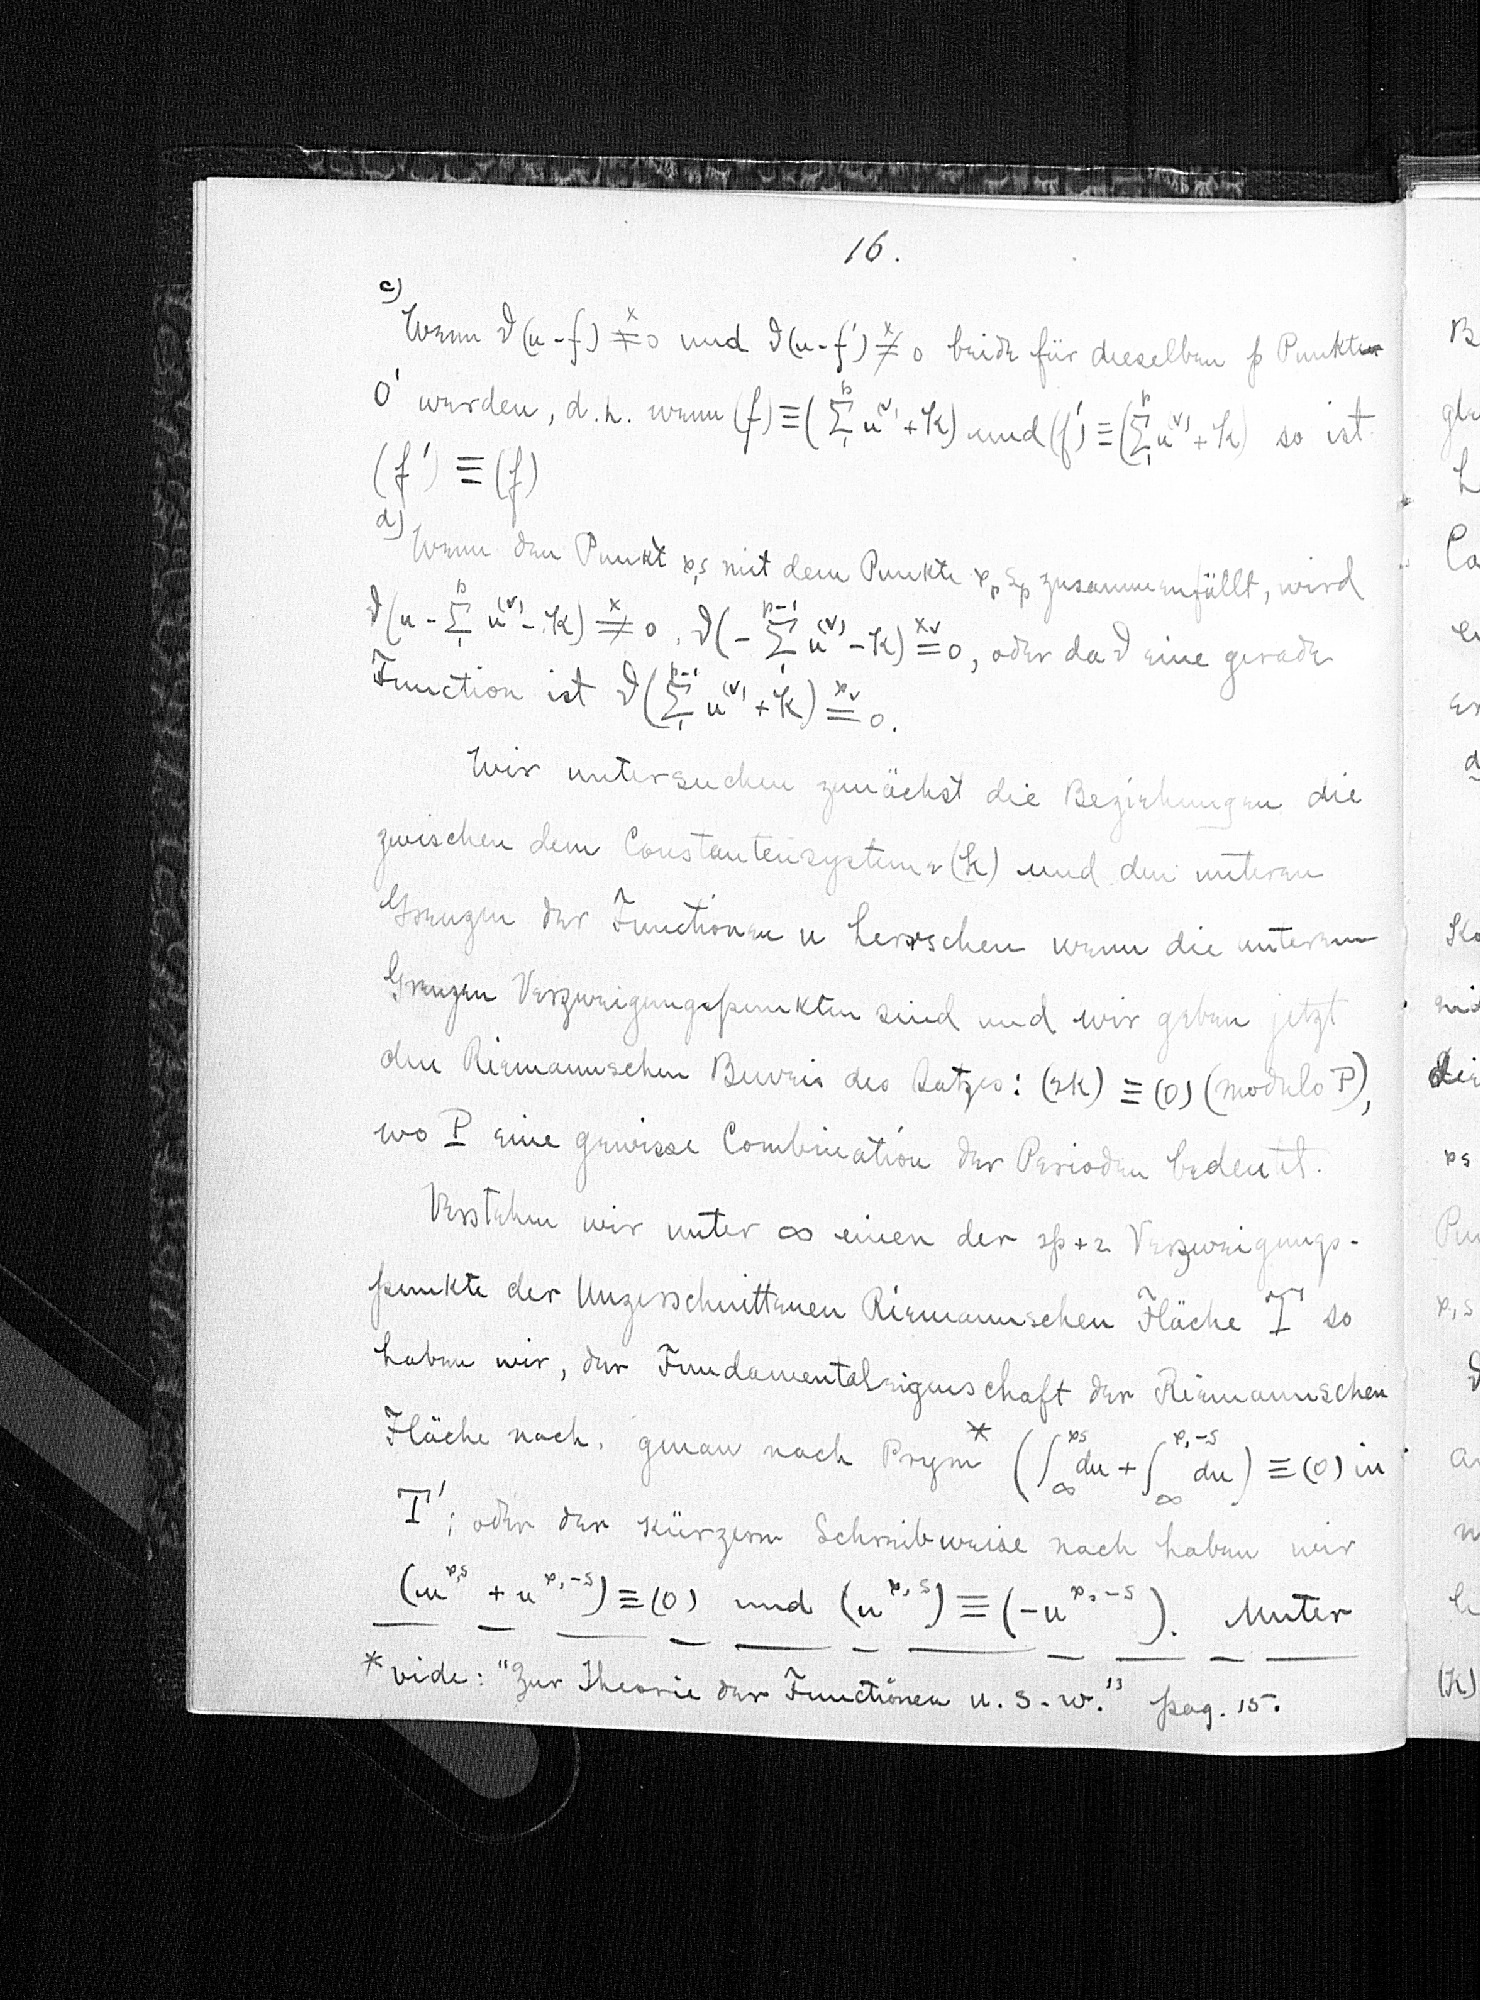 16.
c)
Wenn ϑ(u-f) ≠ˣ 0 und ϑ(u-f') ≠ˣ 0 beide für dieselben p Punkte
0' werden, d.h. wenn (f) ≡ (Σ₁ᵖ u⁽ᵛ⁾ + K) und (f') ≡ (Σ₁ᵖ u⁽ᵛ⁾ + K) so ist
(f') ≡ (f)
d)
Wenn den Punkt x,s mit dem Punkte xₚ sₚ zusammenfällt, wird
ϑ(u - Σ₁ᵖ u⁽ᵛ⁾ - K) ≠ˣ 0, ϑ(- Σ₁ᵖ⁻¹ u⁽ᵛ⁾ - K) =ˣᵛ 0, oder da ϑ eine gerade
Function ist ϑ(Σ₁ᵖ⁻¹ u⁽ᵛ⁾ + K) =ˣᵛ 0.
Wir untersuchen zunächst die Beziehungen die
zwischen dem Constantensysteme (K) und den unteren
Grenzen der Functionen u herrschen wenn die unteren
Grenzen Verzweigungspunkten sind und wir geben jetzt
den Riemannschen Beweis des Satzes: (2K) ≡ (0) (modulo P),
wo P eine gewisse Combination der Perioden bedeutet.
Verstehen wir unter ∞ einen der 2p+2 Verzweigungs-
punkte der Unzerschnittenen Riemannschen Fläche T so
haben wir, der Fundamentaleigenschaft der Riemannschen
Fläche nach, genau nach Prym* (∫_∞^{x,s} du + ∫_∞^{x,-s} du) ≡ (0) in
T'; oder der kürzern Schreibweise nach haben wir
(u^{x,s} + u^{x,-s}) ≡ (0) und (u^{x,s}) ≡ (-u^{x,-s}). Unter
* vide: "Zur Theorie der Functionen u.s.w." pag. 15.